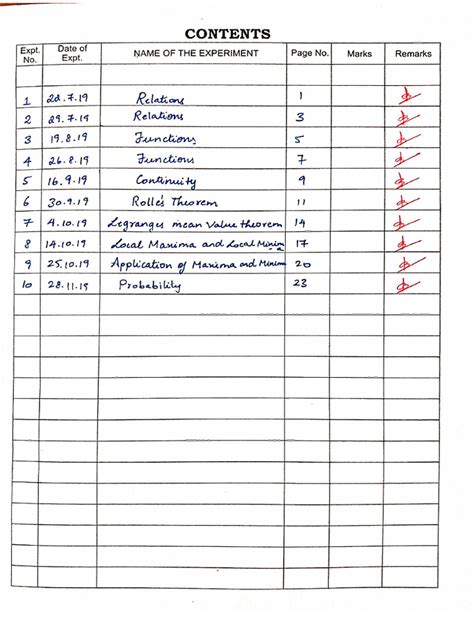 CONTENTS
Expt. No. Date of Expt. NAME OF THE EXPERIMENT Page No. Marks Remarks
1 22.7.19 Relations 1
2 29.7.19 Relations 3
3 19.8.19 Functions 5
4 26.8.19 Functions 7
5 16.9.19 Continuity 9
6 30.9.19 Rolle's Theorem 11
7 4.10.19 Legranges mean Value theorem 14
8 14.10.19 Local Maxima and Local Minima 17
9 25.10.19 Application of Maxima and Minima 20
10 28.11.19 Probability 23